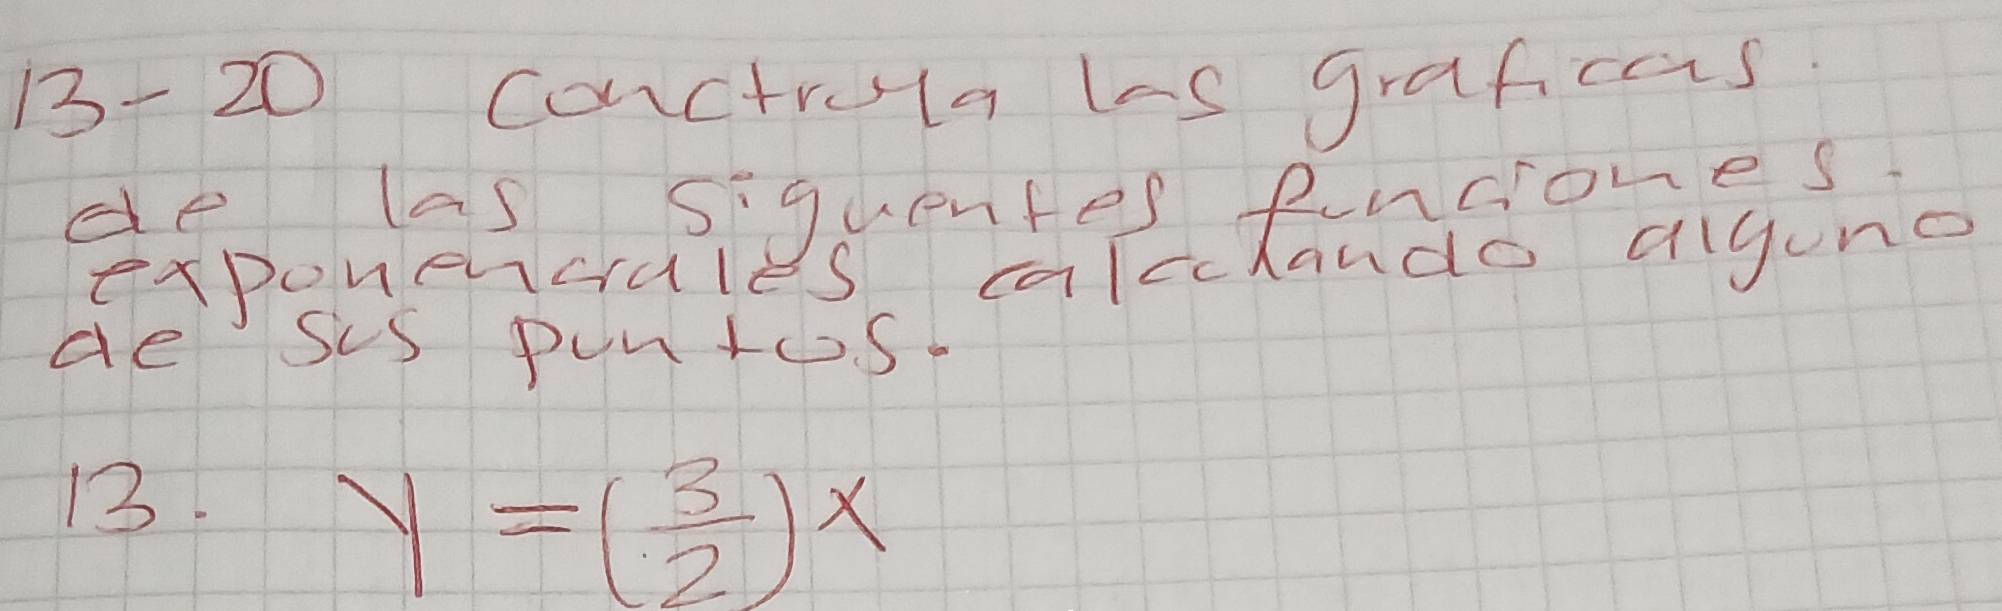 13-20 Conctruya las graficas.
de las siguentes funciones.
exponenciales calculando alguno
de sus puntos.
13. Y = (3/2) x